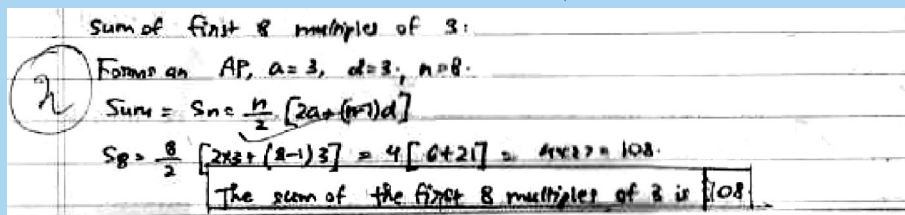 Sum of first 8 multiples of 3:
Forms an AP, a=3, d=3, n=8.
2
Sum = Sn = n/2 [2a+(n-1)d]
S8 = 8/2 [2x3+(8-1)3] = 4[6+21] = 4x27 = 108.
The sum of the first 8 multiples of 3 is 108